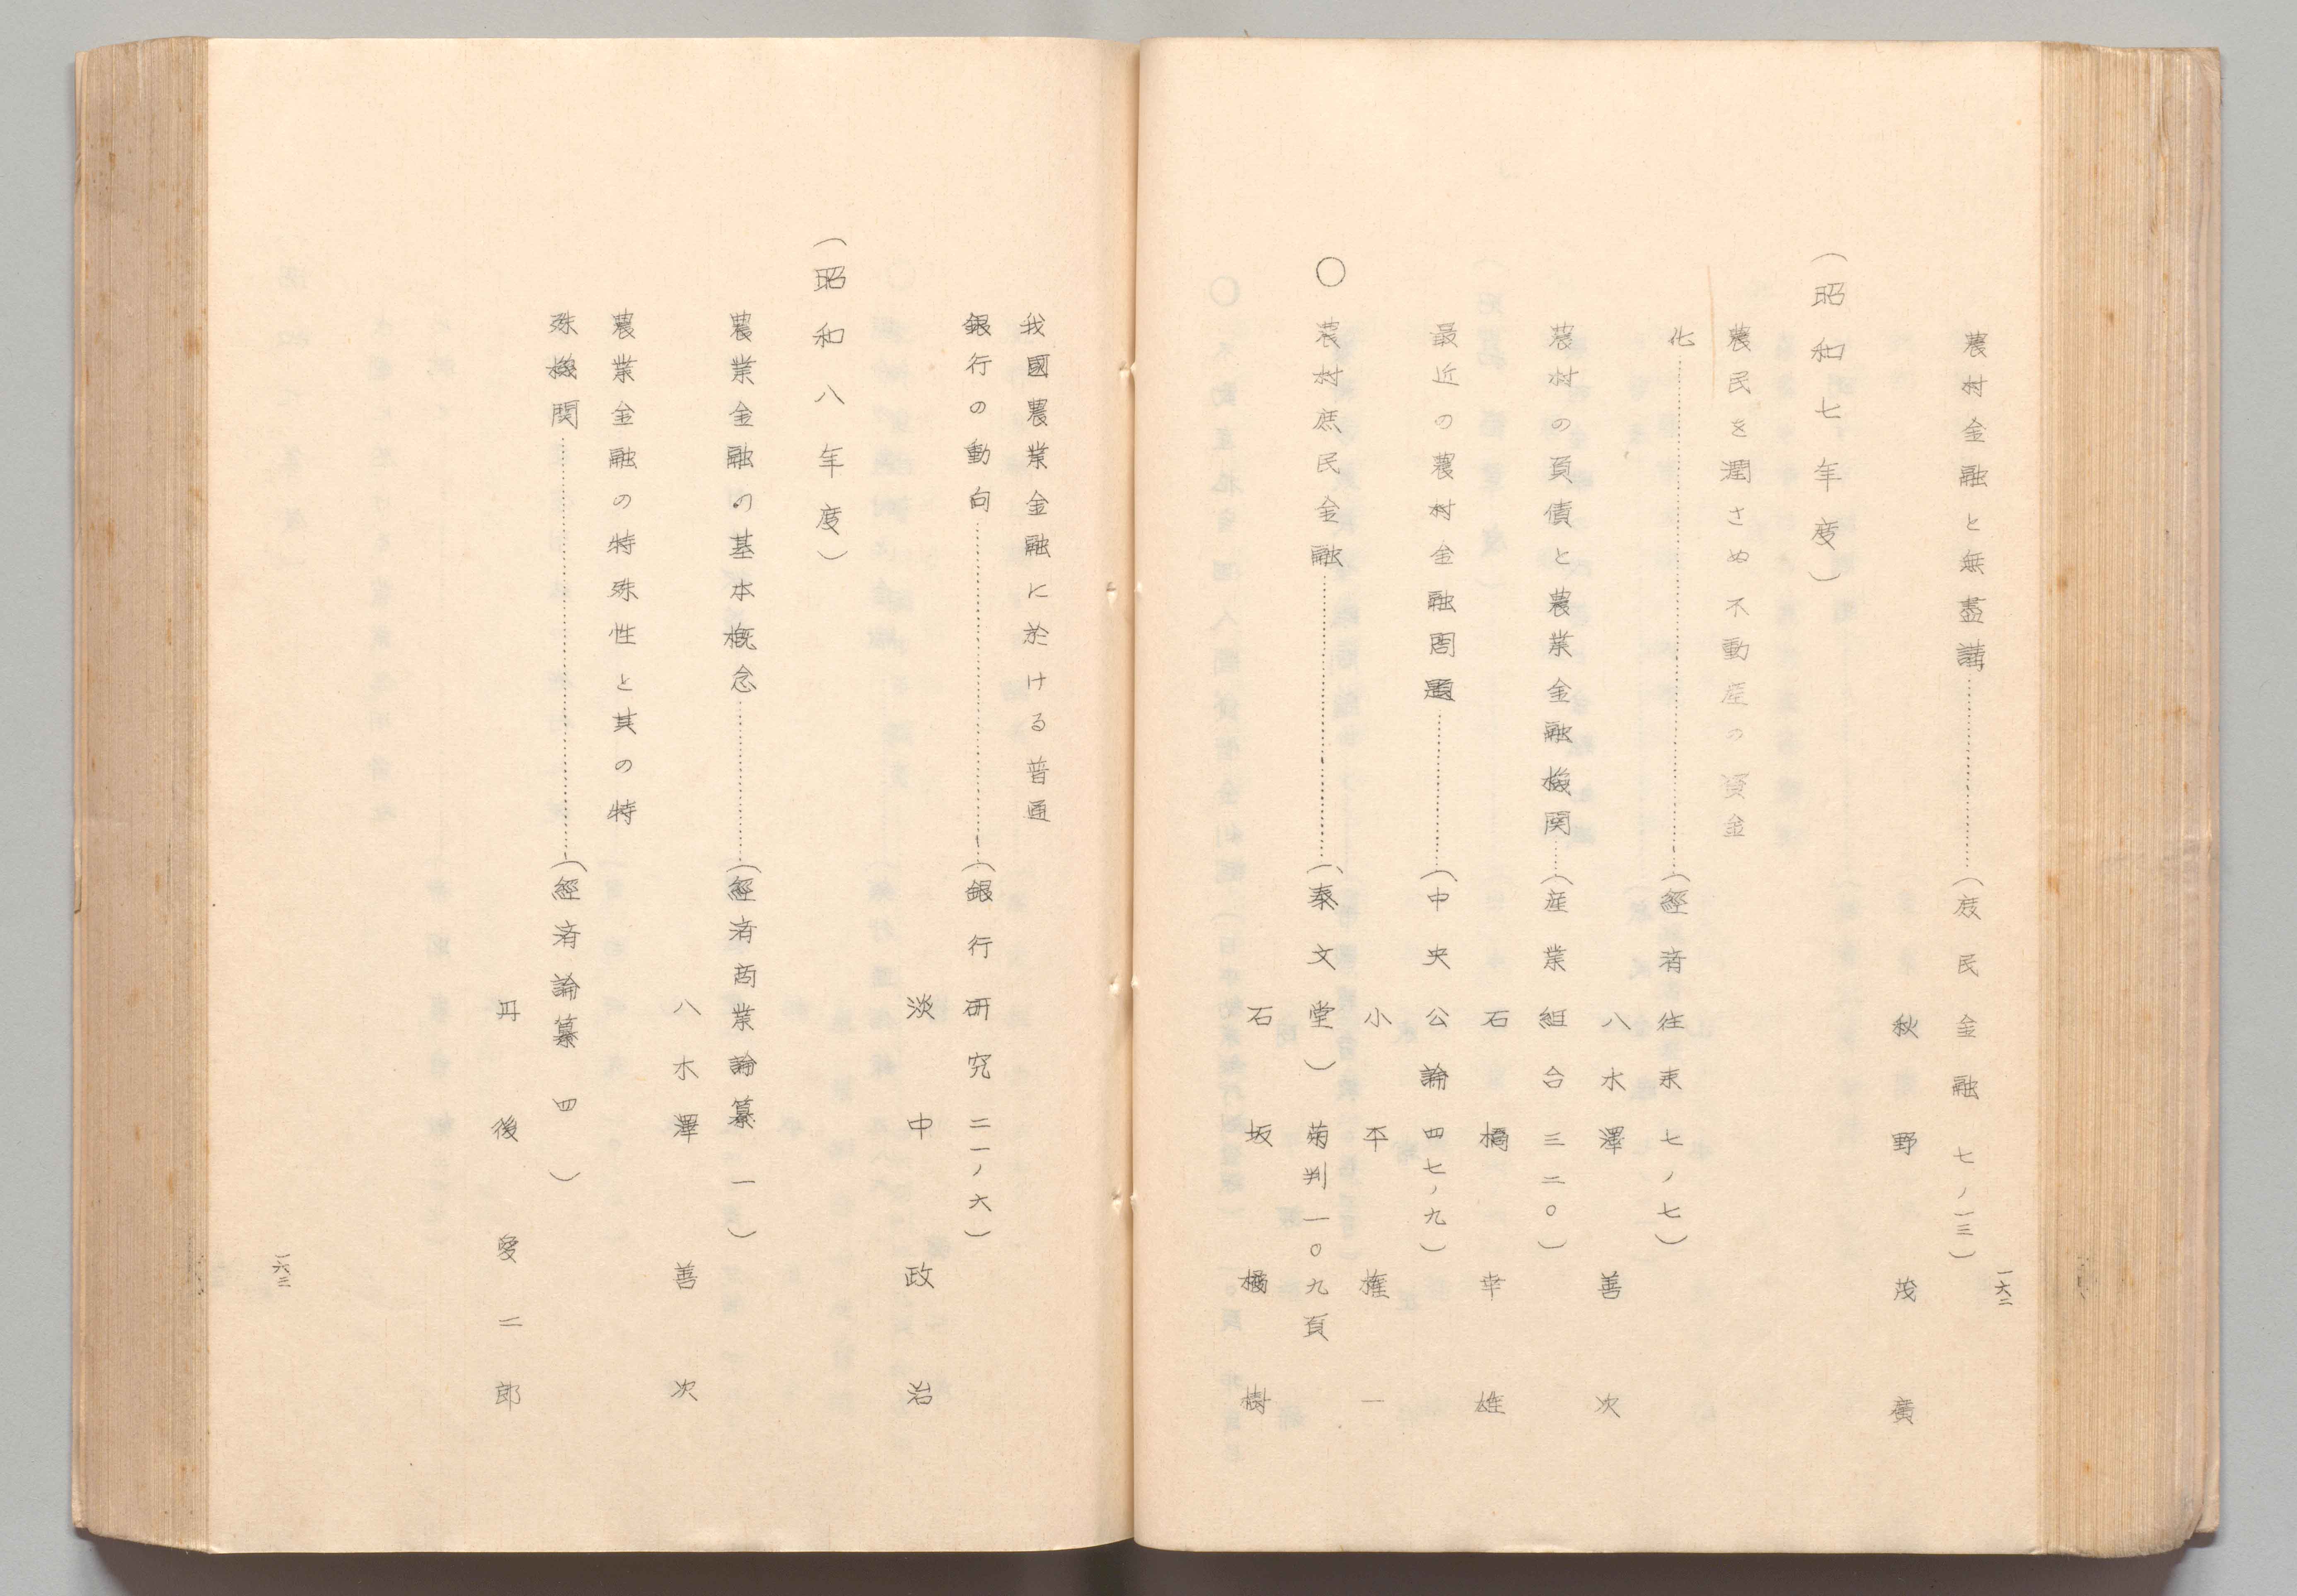 一六二
農村金融と無盡講……………(庶民金融 七ノ一三)
秋野茂廣
(昭和七年度)
農民を潤さぬ不動産の資金
化……………(經済往来 七ノ七)
八木澤善次
農村の負債と農業金融機関……(産業組合 三二〇)
石橋幸雄
最近の農村金融問題……………(中央公論 四七ノ九)
小平權一
○農村庶民金融……………(泰文堂) 菊判一〇九頁
石坂橘樹
我國農業金融に於ける普通
銀行の動向……………(銀行研究 二一ノ六)
淡中政治
(昭和八年度)
農業金融の基本概念……………(經済商業論纂 一)
八木澤善次
農業金融の特殊性と其の特
殊機関……………(經済論纂 四)
丹後愛二郎
一六三